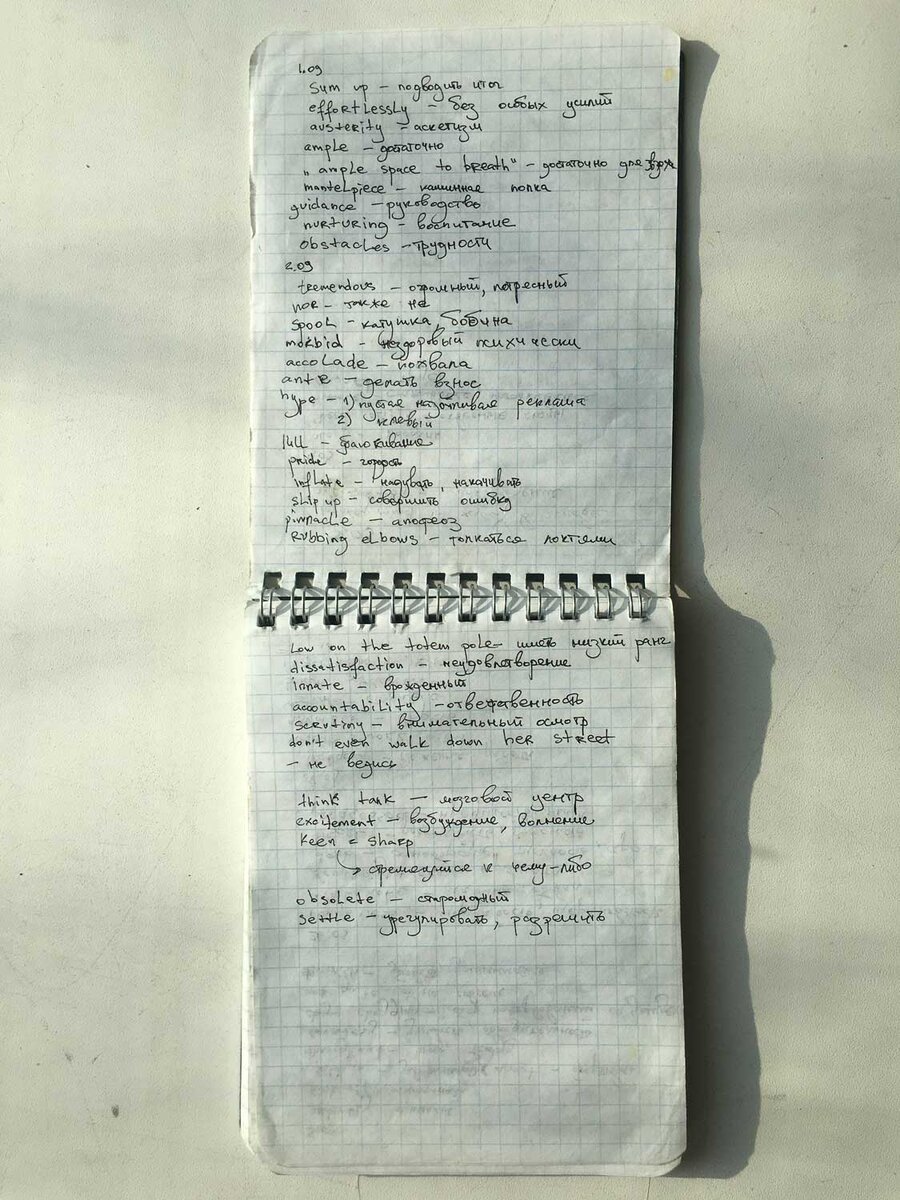 1.09
Sum up – подводить итог
effortlessly – без особых усилий
austerity = аскетизм
ample – достаточно
„ample space to breath" – достаточно для
mantelpiece – каминная полка
guidance – руководство
nurturing – воспитание
obstacles – трудности
2.09
tremendous – огромный, потресный
nor – также не
spool – катушка, бобина
morbid – нездоровый психически
accolade – похвала
ante – делать взнос
hype – 1) пустая назойливая реклама
2) клевый
lull –
pride – гордость
inflate – надувать, накачивать
slip up – совершить ошибку
pinnacle – апофеоз
Rubbing elbows – толкаться локтями
Low on the totem pole – иметь низкий ранг
dissatisfaction – неудовлетворение
innate – врожденный
accountability – ответственность
scrutiny – внимательный осмотр
don't even walk down her street
– не ведись
think tank – мозговой центр
excitement – возбуждение, волнение
Keen = sharp
стремящийся к чему-либо
obsolete – старомодный
settle – урегулировать, разрешить